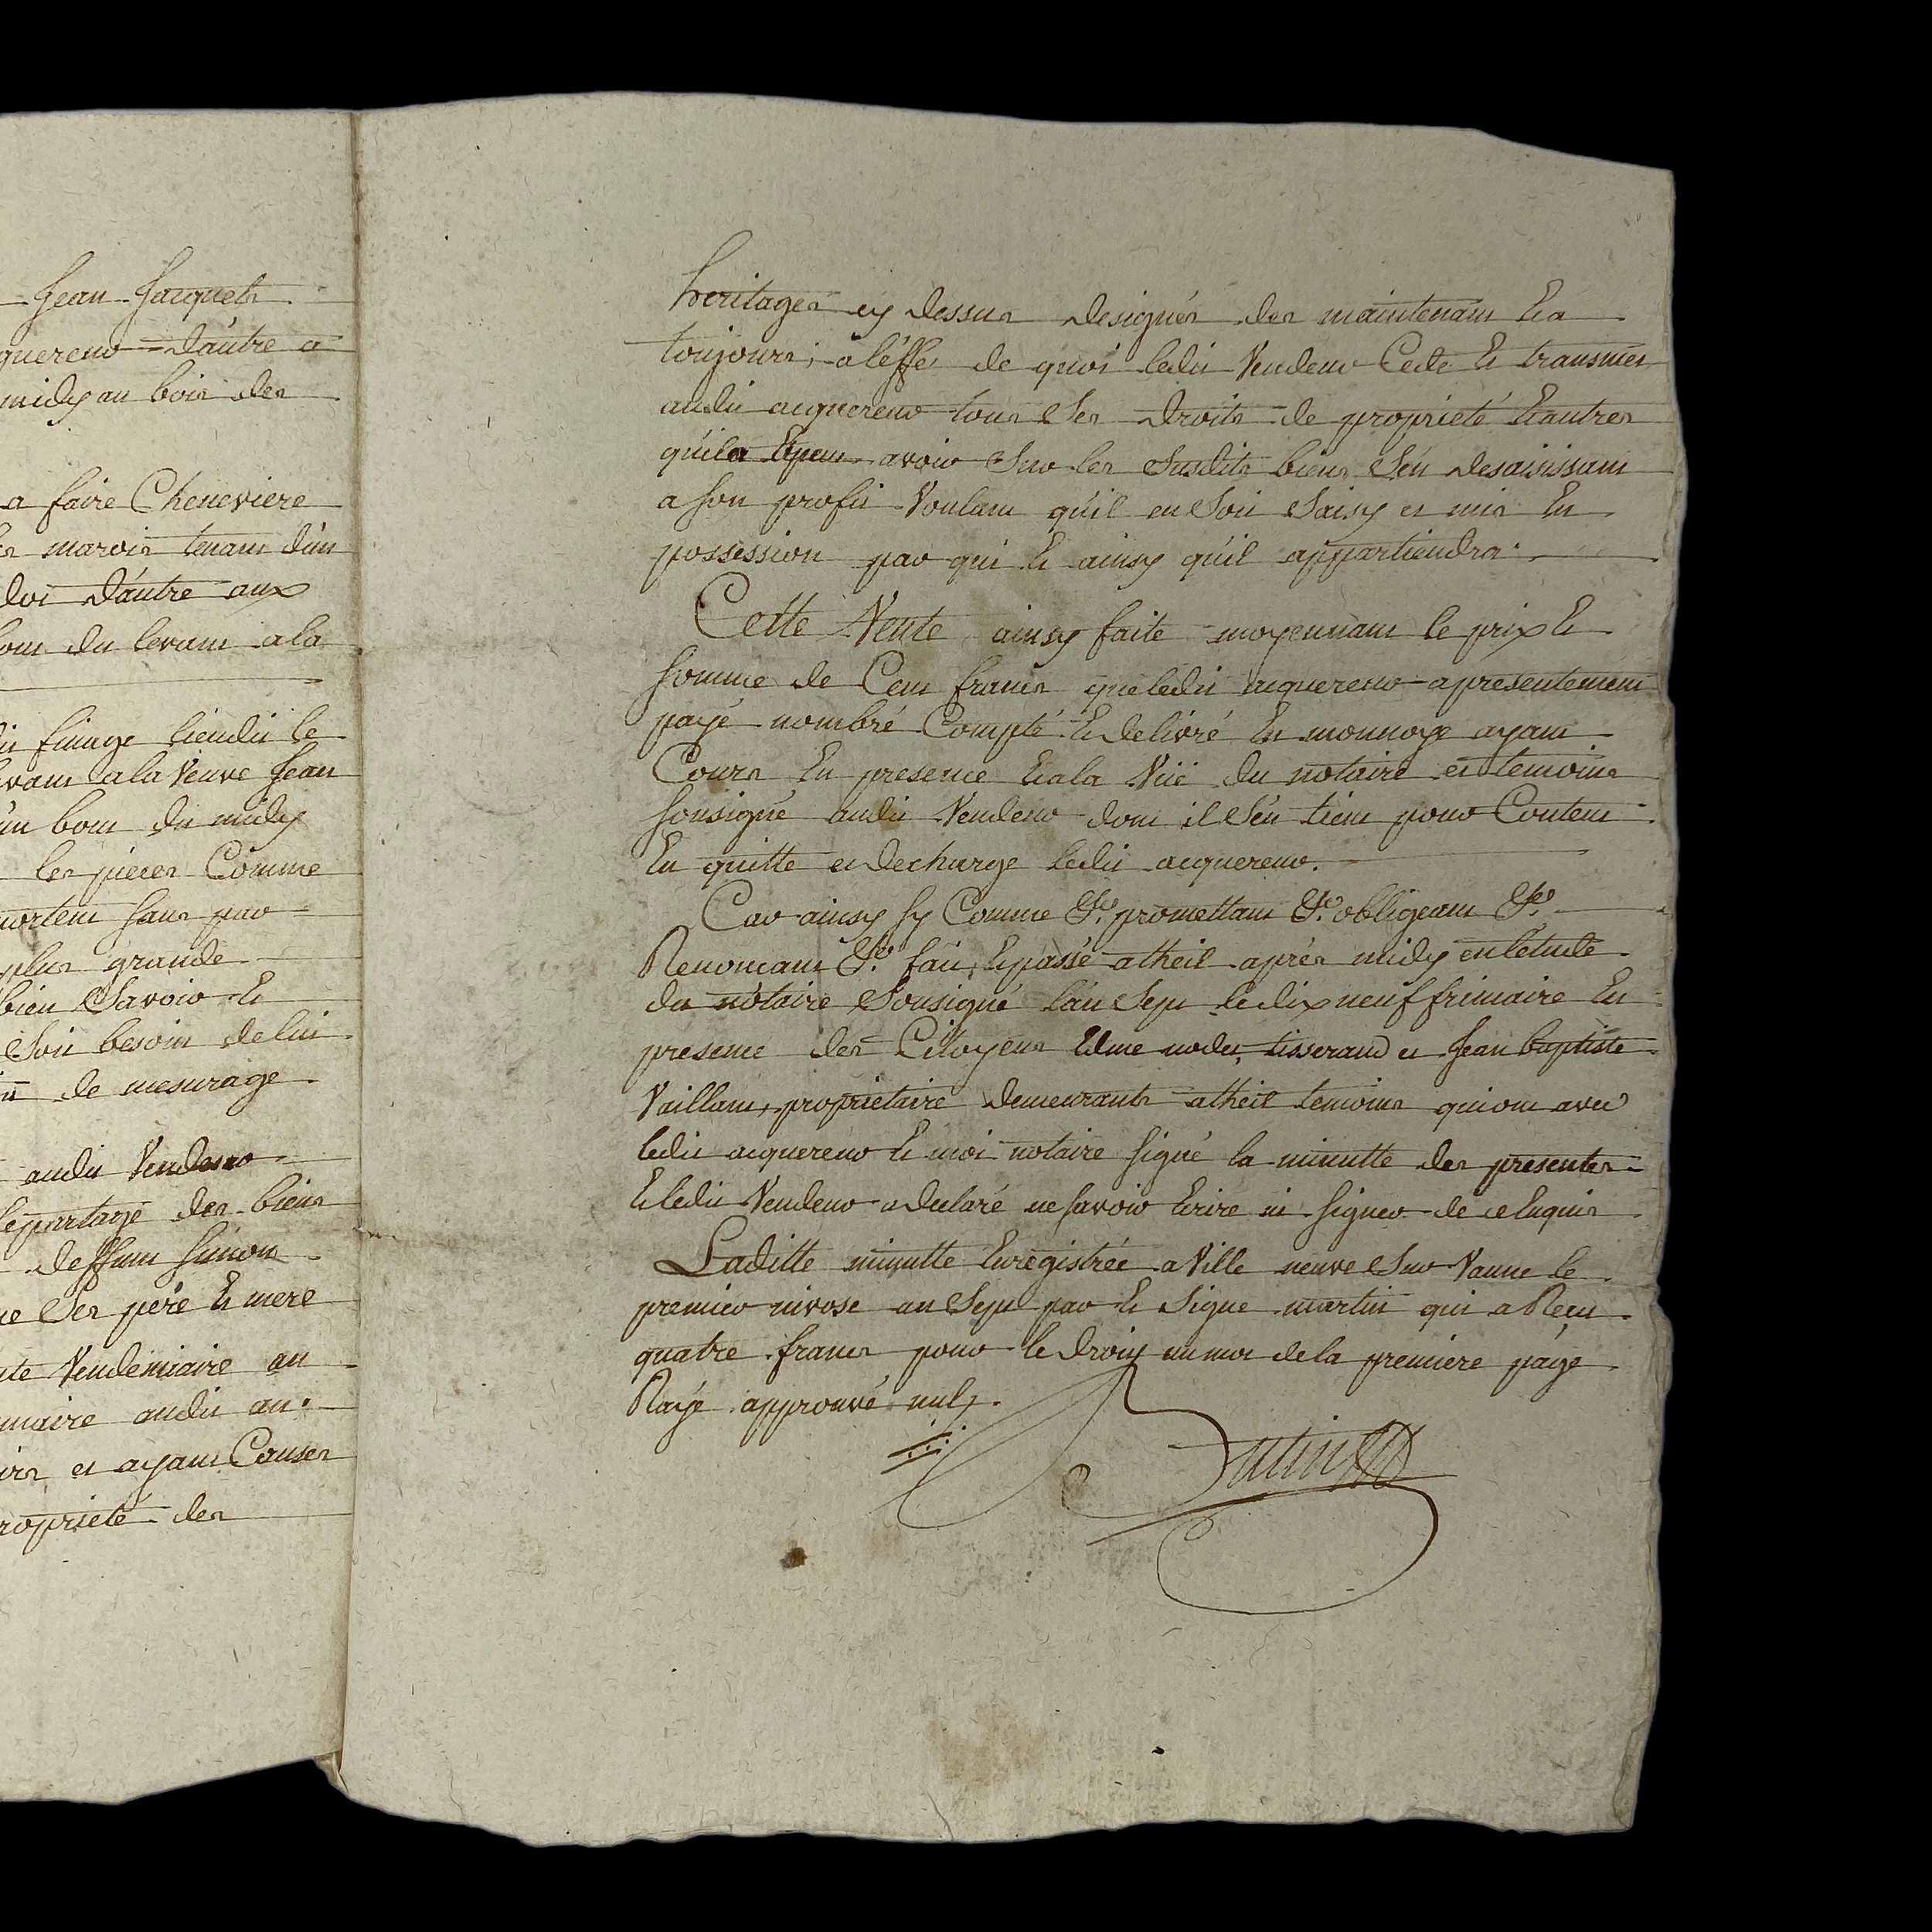 Jean Jacquets
quereur d'autre a
midy au bois des
a faire Cheneviere
les marois tenant d'un
dot d'autre aux
bout du levant a la
dit finage lieudit le
levant a la Veuve Jean
d'un bout du midy
les pieces Comme
portent sans par
plus grande
bien Savoir Et
Soit besoin de lui
ni de mesurage
audit Vendeur
le partage des biens
deffunt Simon
ne Ses pere Et mere
nte Vendemiaire an
maire audit an
irs et ayant Causes
ropriété des
heritages cy dessus designés des maintenant Et a
toujours, a l'éffet de quoi ledit Vendeur Cede Et transmet
audit acquereur tous Ses droits de proprieté Et autres
qu'il a Et peut avoir Sur les Susdits biens S'én desaisissant
a son profit Voulant qu'il en Soit Saisy et mis En
possession par qui Et ainsy qu'il appartiendra.
Cette Vente ainsy faite moyennant le prix Et
somme de Cent francs que ledit acquereur a presentement
payé nombré Compté Et delivré En monnoye ayant
Cours En presence Et a la Vüe du notaire et temoins
sousigné audit Vendeur dont il S'én tient pour Content
En quitte et decharge ledit acquereur.
Car ainsy sy Comme &c. promettant &c. obligeant &c.
Renoncant &c. fait, Et passé a theil aprés midy en l'étude
du notaire Sousigné l'an Sept le dix neuf frimaire En
presence des Citoyens Edme nodet, tisserand et Jean baptiste
Vaillant, proprietaire demeurants a theil temoins qui ont avec
ledit acquereur Et moi notaire signé la minutte des presentes
Et ledit Vendeur a declaré ne savoir Ecrire ni signer de ce Enquis
Laditte minutte Enregistrée a Ville neuve Sur Vanne le
premier nivose an Sept par Et Signé martin qui a Recu
quatre francs pour le droit un mot de la premiere page
Rayé approuvé nul,.